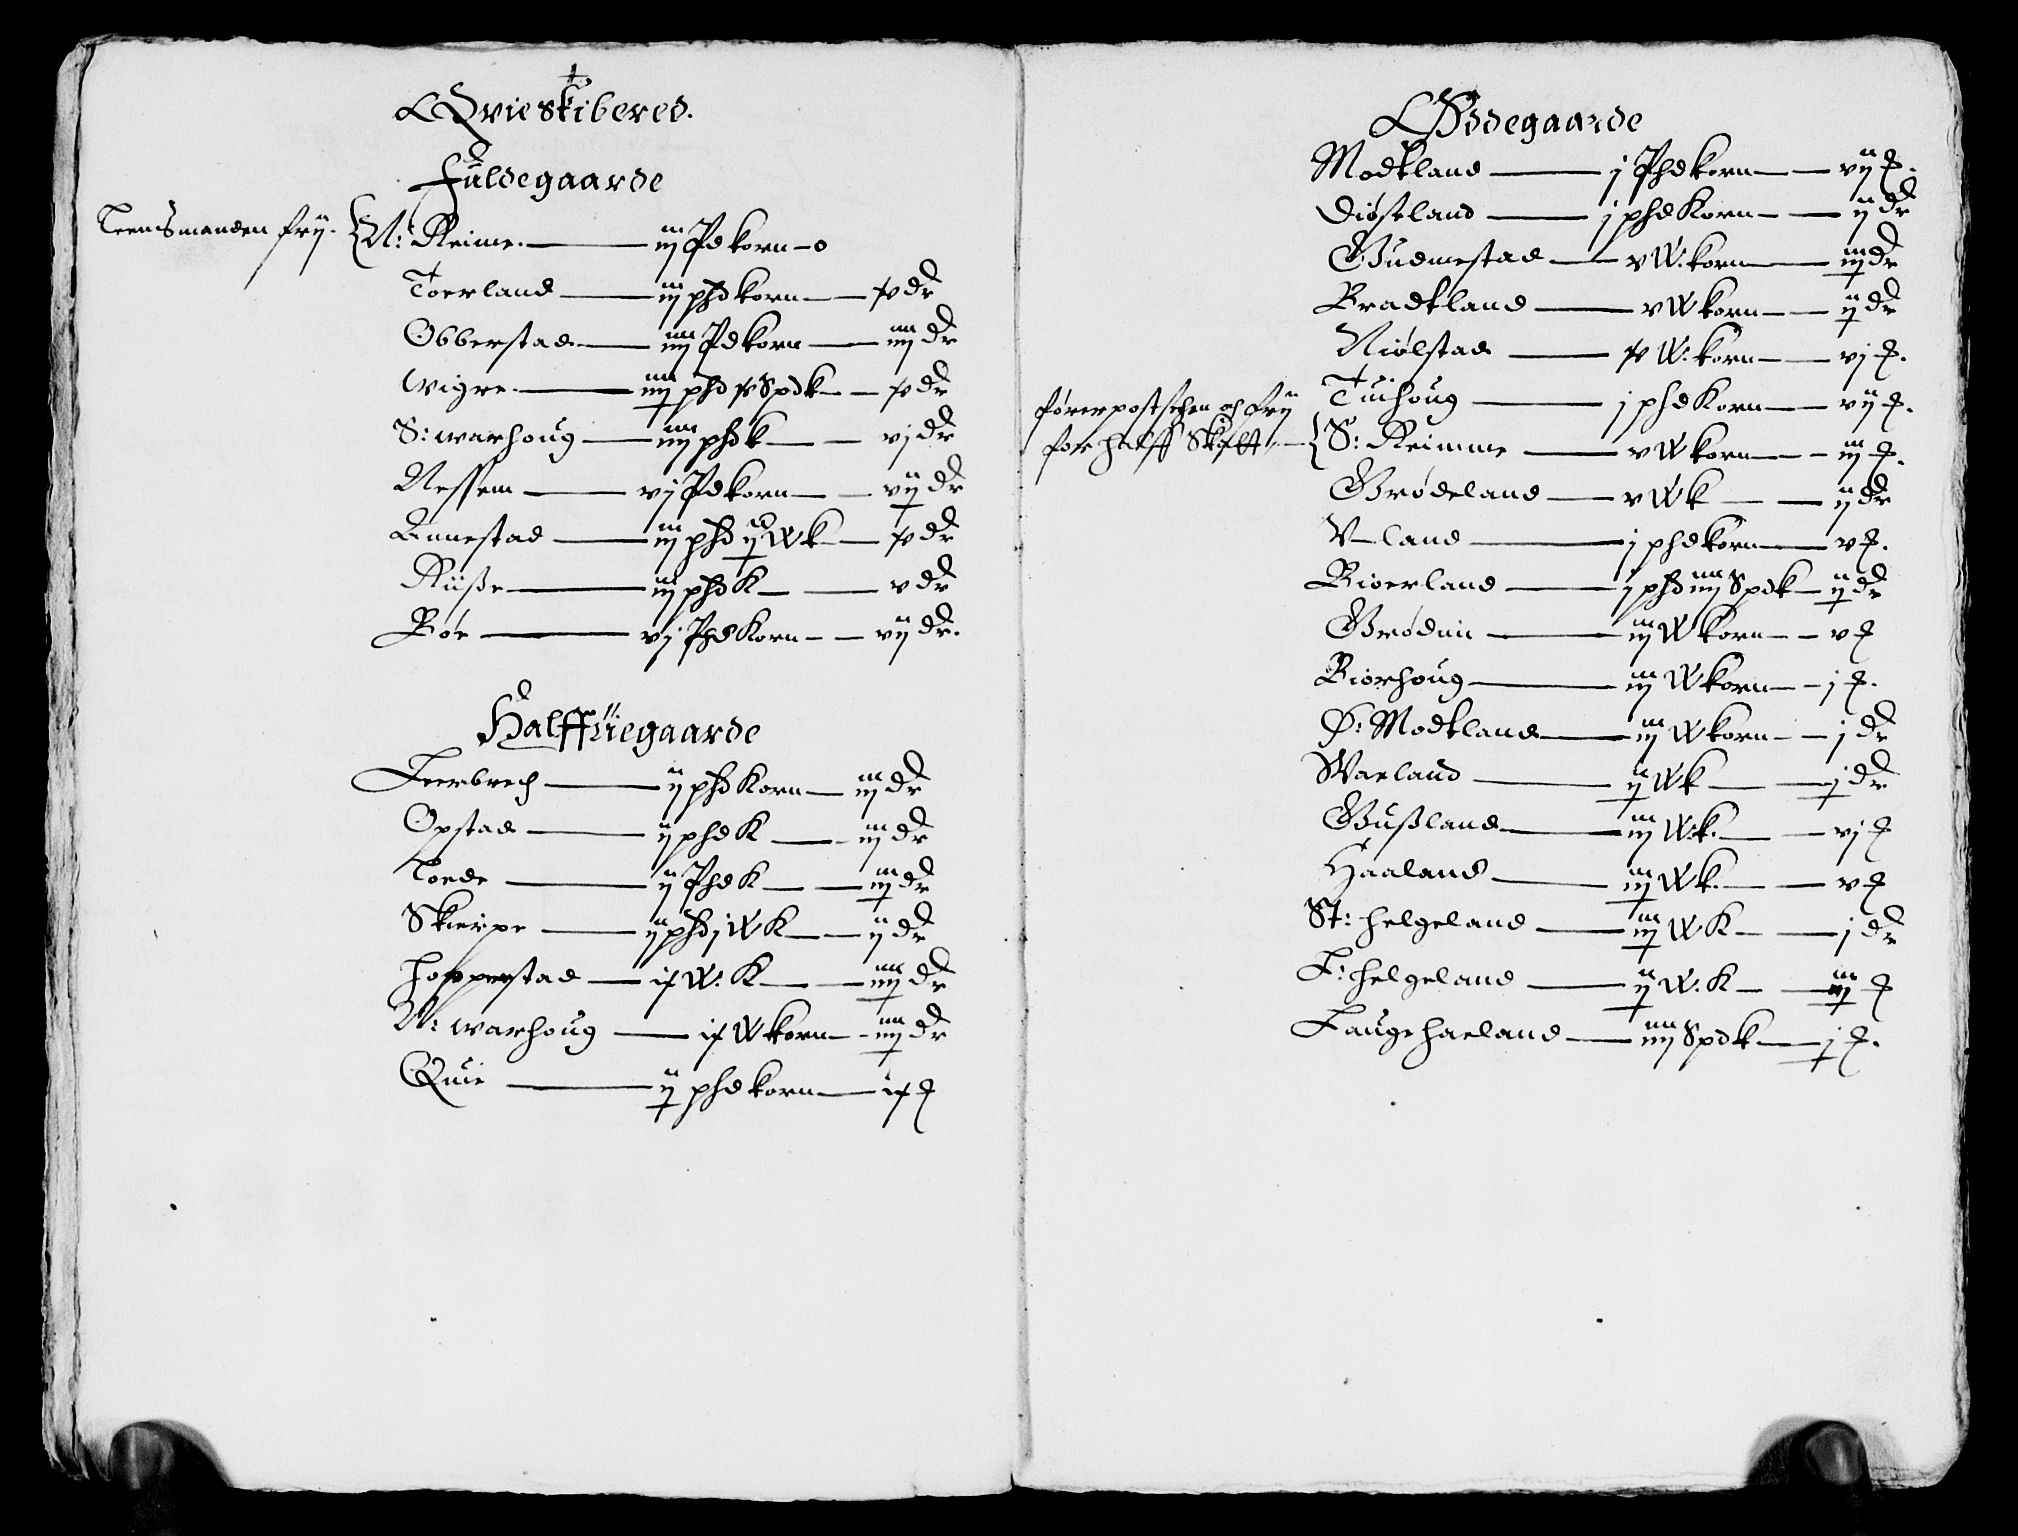 Qvie skibered.
Fuldegaarde
Leensmanden frij. { N: Reime. — iij Pd korn — o
Toerland — iij phd korn — dr
Obberstad — iiij Pd korn — iiij dr
Wigre — iiij phd Spdk — dr
S: warhoug — iiij phd k — vj dr
Nessem — vj Pd korn — vij dr
Annestad — iij phd ij W k — dr
Riiße — iij phd K — v dr
Bøe — vj Phd Korn — vij dr.
Halffuegaarde
Leerbrech — ij phd Korn — iij dr
Opstad — ij phd K — iij dr
Toede — ij Phd K — iij dr
Skierpe — ij phd j W K — ij dr
Hopperstad — W: K — iiij dr
N: warhoug — W korn — iiij dr
Quie — ij phd korn
Ødegaarde
Modkland — j Phd korn — vij
Diøstland — j phd Korn — ij dr
Gudmestad — v W: korn — iij dr
Bradkland — v W korn — ij dr
Niølstad — W: korn — vj
Tuihoug — j phd Korn — vij
och frij
for halff Skatt { S: Reimme — v W korn — iij
Grødeland — v W k — ij dr
V-land — j phd korn — v
Bioerland — j phd iiij Spdk — ij dr
Grødem — iij W korn — v
Biorhoug — iij W korn — j
Ø: Modkland — iij W korn — j dr
Waeland — ij W k — j dr
Gußland — iij W: k. — vj
Haaland — iij W k. — v
St: helgeland — iij W K — j dr
L: helgeland — ij W. K — iij
Laugehaeland — iiij Spdk — j